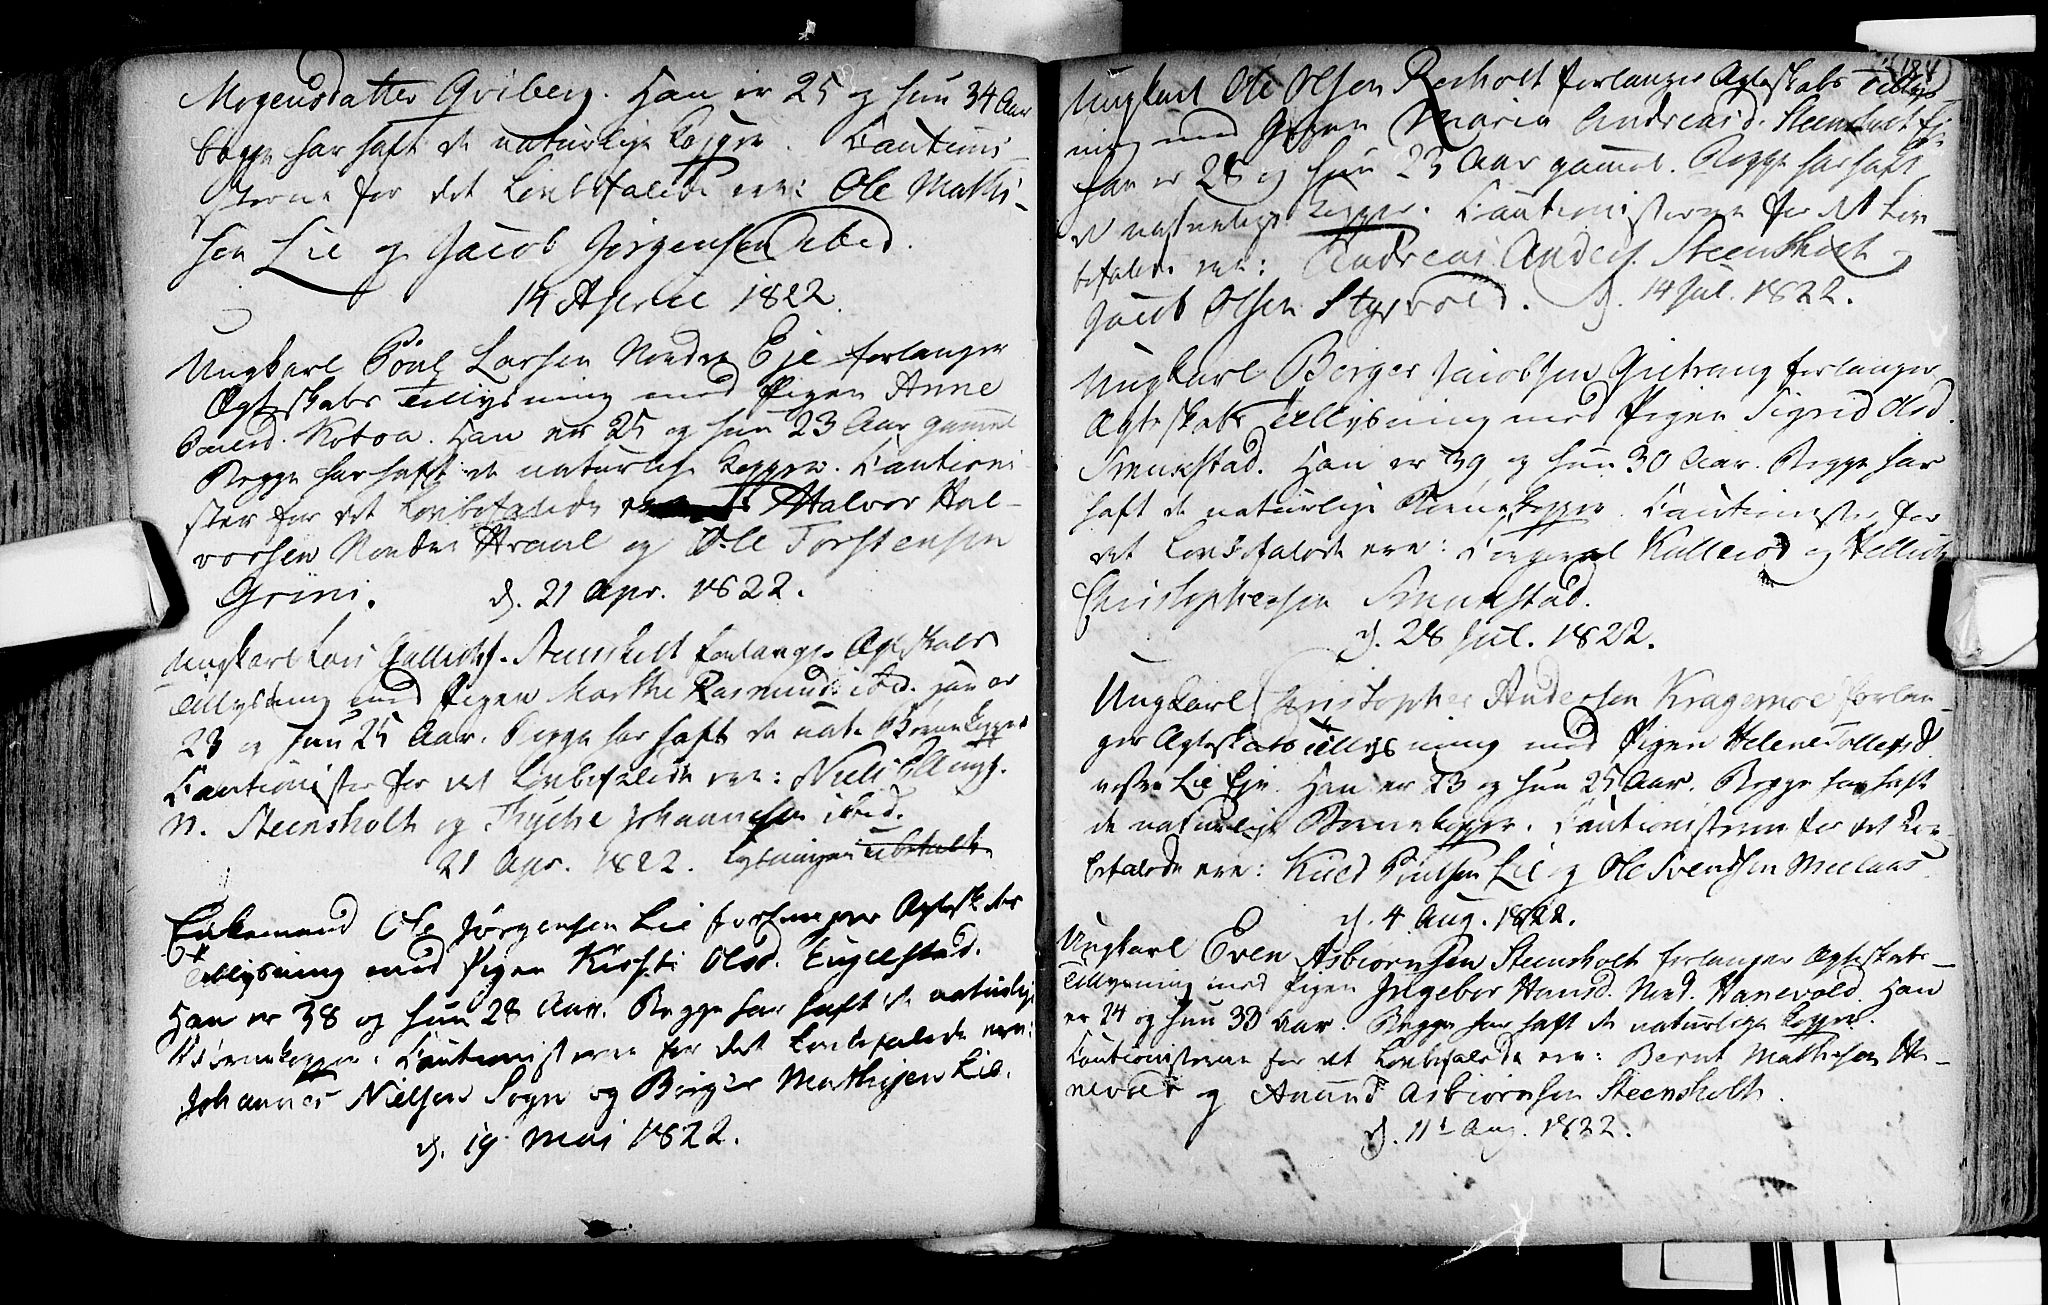 Mogensdatter Griberg. Han er 25 og hun 34 Aar
begge har haft de naturlige Kopper. Cautioni-
sterne for det Lovbefalede ere: Ole Mathi-
sen Lie og Jacob Jørgensen ibid.
14 April 1822.
Ungkarl Poul Larsen Nordre Eje forlanger
Ægteskabs Tillysning med Pigen Anne
Poulsd. Han er 25 og hun 23 Aar gammel
Begge har haft de naturlige Kopper. Cautioni-
ster for det Lovbefalede Halvor Hal-
vorsen Nordre og Ole Torstensen
Grini. d. 21 Apr. 1822.
Ungkarl Lars Steensholt forlanger Ægteskabs
Tillysning med Pigen Marthe Rasmusd. ibid. Han er
23 og hun 25 Aar. Begge har haft de nat. Børnekopper
Cautionister for det Lovbefalede ere: Niels
N. Steensholt og Thyche Johannesen ibid.
21 Apr. 1822. Lysningen ubetalt
Enkemand Ole Jørgensen Lie forlanger Ægteskabs
Tillysning med Pigen Kirsti Olsd. Engelstad.
Han er 38 og hun 28 Aar. Begge har haft de naturlige
Børnekopper. Cautionisterne for det Lovbefalede ere:
Johannes Nielsen Sogn og Birger Mathisen Lie.
d. 19 Mai 1822.
184
Ungkarl Ole Olsen forlanger Ægteskabs Tillys-
ning med Pigen Maria Andreasd. Steensholt
Han er 28 og hun 23 Aar gammel. Begge har haft
de naturlige Kopper. Cautionisterne for det Lov-
befalede ere: Andreas Anders. Steensholt og
Jacob Olsen Styrvold. d. 14 Jul. 1822.
Ungkarl Berger Jacobsen Gietrang forlanger
Ægteskabs Tillysning med Pigen Sigrid Olsd.
Smukestad. Han er 39 og hun 30 Aar. Begge har
haft de naturlige Børnekopper. Cautionister for
det Lovbefalede ere: Corporal Kallerød og Hellich
Christophersen Smukestad.
d. 28 Jul. 1822.
Ungkarl Christopher Andersen Kragemoe forlan-
ger Ægteskabs Tillysning med Pigen Helene Tollefsd.
vestre Lie Eje. Han er 23 og hun 25 Aar. Begge har haft
de naturlige Børnekopper. Cautionisterne for det Lov-
befalede ere: Knud Poulsen Lie og Ole Svendsen Meelaas
d. 4 Aug. 1822.
Ungkarl Even Asbiørnsen Steensholt forlanger Ægteskabs-
Tillysning med Pigen Ingebor Hansd. Nord. Hanevold. Han
er 24 og hun 30 Aar. Begge har haft de naturlige Kopper.
Cautionisterne for det Lovbefalede ere: Bernt Mathisen Ha-
nevold og Anund Asbiørnsen Steensholt.
d. 11te Aug. 1822.